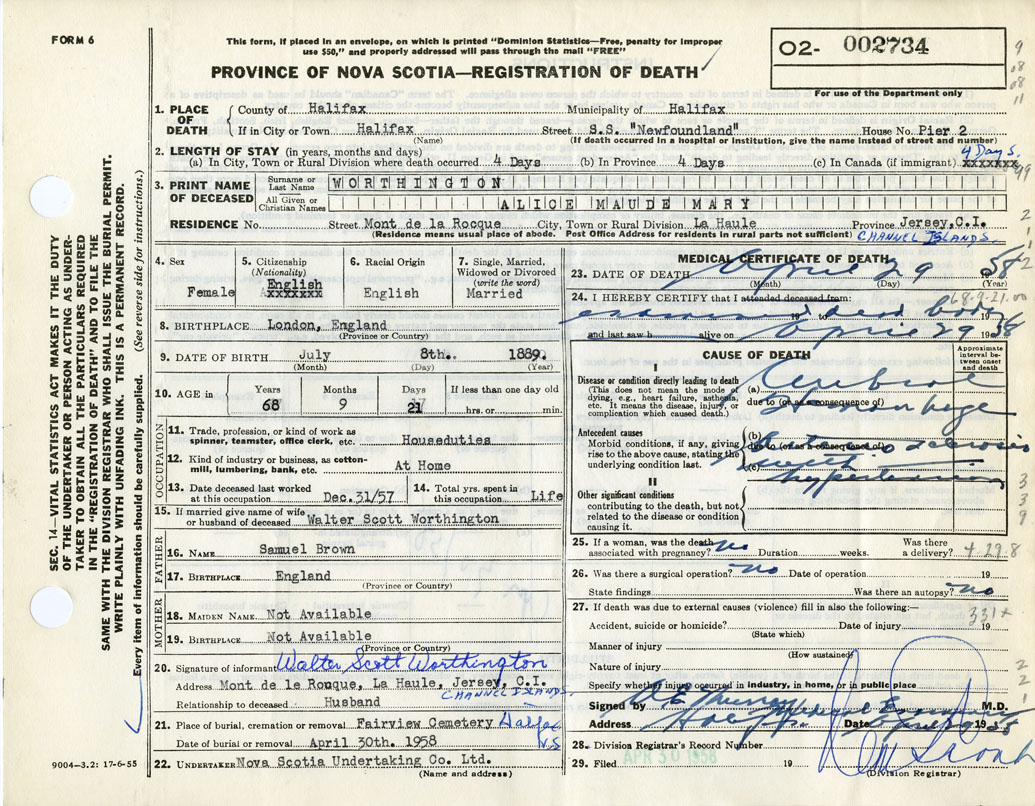 FORM 6
This form, if placed in an envelope, on which is printed "Dominion Statistics—Free, penalty for improper
use $50," and properly addressed will pass through the mail "FREE"
PROVINCE OF NOVA SCOTIA—REGISTRATION OF DEATH
O2- 002734
For use of the Department only
9
08
08
11
SEC. 14—VITAL STATISTICS ACT MAKES IT THE DUTY
OF THE UNDERTAKER OR PERSON ACTING AS UNDER-
TAKER TO OBTAIN ALL THE PARTICULARS REQUIRED
IN THE "REGISTRATION OF DEATH" AND TO FILE THE
SAME WITH THE DIVISION REGISTRAR WHO SHALL ISSUE THE BURIAL PERMIT.
WRITE PLAINLY WITH UNFADING INK. THIS IS A PERMANENT RECORD.
Every item of information should be carefully supplied. (See reverse side for instructions.)
1. PLACE OF DEATH
County of Halifax Municipality of Halifax
If in City or Town Halifax Street S.S. "Newfoundland" House No. Pier 2
(Name) (If death occurred in a hospital or institution, give the name instead of street and number)
2. LENGTH OF STAY (in years, months and days)
4 Days.
(a) In City, Town or Rural Division where death occurred 4 Days (b) In Province 4 Days (c) In Canada (if immigrant) xxxxxxx
3. PRINT NAME OF DECEASED
Surname or Last Name WORTHINGTON
All Given or Christian Names ALICE MAUDE MARY
RESIDENCE No. Street Mont de la Rocque City, Town or Rural Division La Haule Province Jersey,C.I.
(Residence means usual place of abode. Post Office Address for residents in rural parts not sufficient) CHANNEL ISLANDS.
4. Sex
Female
5. Citizenship
(Nationality)
English
xxxxxxx
6. Racial Origin
English
7. Single, Married, Widowed or Divorced
(write the word)
Married
8. BIRTHPLACE London, England
(Province or Country)
9. DATE OF BIRTH July 8th.. 1889.
(Month) (Day) (Year)
10. AGE in
Years
68
Months
9
Days
21
If less than one day old
hrs. or min.
OCCUPATION
11. Trade, profession, or kind of work as
spinner, teamster, office clerk, etc. Houseduties
12. Kind of industry or business, as cotton-
mill, lumbering, bank, etc. At Home
13. Date deceased last worked
at this occupation Dec.31/57
14. Total yrs. spent in
this occupation Life
15. If married give name of wife
or husband of deceased Walter Scott Worthington
FATHER
16. NAME Samuel Brown
17. BIRTHPLACE England
(Province or Country)
MOTHER
18. MAIDEN NAME Not Available
19. BIRTHPLACE Not Available
(Province or Country)
20. Signature of informant Walter Scott Worthington
Address Mont de le Rouque, La Haule, Jersey, C.I.
CHANNEL ISLANDS.
Relationship to deceased Husband
21. Place of burial, cremation or removal Fairview Cemetery Halifax
N.S
Date of burial or removal April 30th. 1958
22. UNDERTAKER Nova Scotia Undertaking Co. Ltd.
(Name and address)
9004—3.2: 17-6-55
MEDICAL CERTIFICATE OF DEATH
23. DATE OF DEATH April 29 1958
(Month) (Day) (Year)
68-9-21.
24. I HEREBY CERTIFY that I attended deceased from:
examined dead body
19
and last saw h alive on April 29 1958
CAUSE OF DEATH
Approximate interval between onset and death
I
Disease or condition directly leading to death
(This does not mean the mode of dying, e.g., heart failure, asthenia, etc. It means the disease, injury, or complication which caused death.)
(a) Cerebral
due to (or as a consequence of)
Hemorrhage
Antecedent causes
Morbid conditions, if any, giving rise to the above cause, stating the underlying condition last.
(b)
due to (or as a consequence of)
(c) with
hypertension
II
Other significant conditions
contributing to the death, but not related to the disease or condition causing it.
25. If a woman, was the death
associated with pregnancy? no Duration weeks. Was there a delivery?
4.29.8
26. Was there a surgical operation? no Date of operation 19
State findings Was there an autopsy? no
27. If death was due to external causes (violence) fill in also the following:—
331+
Accident, suicide or homicide? Date of injury 19
(State which)
Manner of injury
(How sustained)
Nature of injury
Specify whether injury occurred in industry, in home, or in public place
Signed by M.D.
Address Date 1958
28. Division Registrar's Record Number
29. Filed APR 30 1958 19
(Division Registrar)